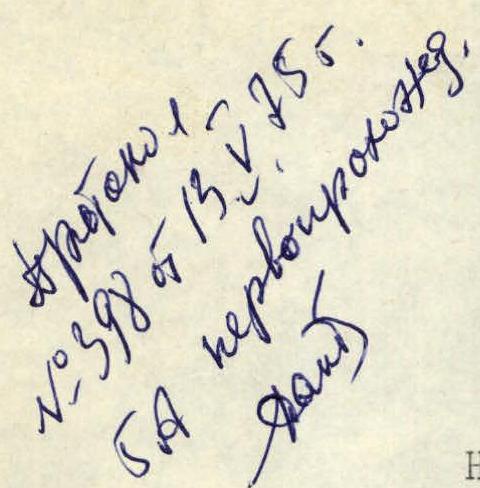 Протокол
№ 398 от 13.V.75 г.
5А первопрохожд.
Н